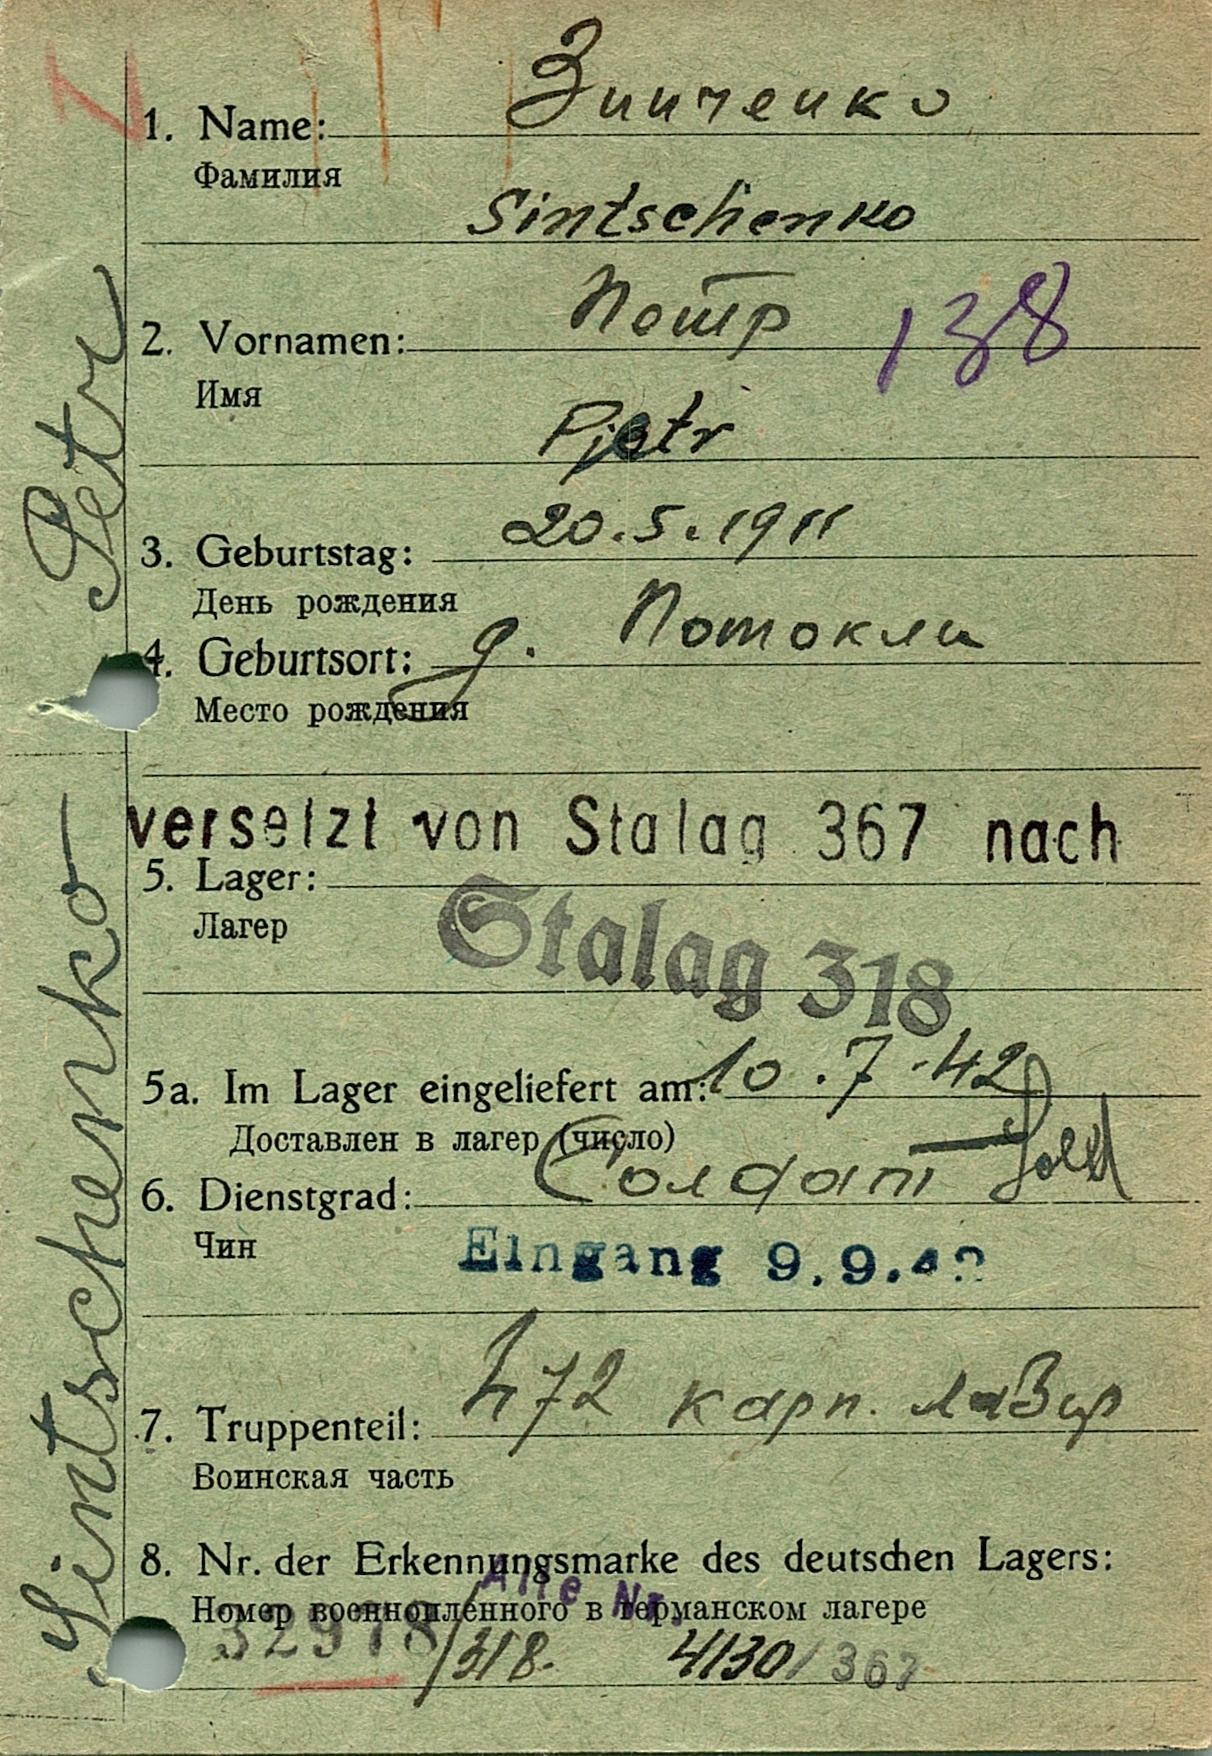 Зинченко
1. Name:
Фамилия
Sintschenko
Потр
2. Vornamen:
138
Имя
Pjetr
20.5.1911
3. Geburtstag:
День рождения
4. Geburtsort: д. Потокли
Место рождения
versetzt von Stalag 367 nach
5. Lager:
Лагер
Stalag 318
5a. Im Lager eingeliefert am: 10.7.42
Доставлен в лагер (число)
6. Dienstgrad: Солдат Sold
Чин
Eingang 9.9.42
7. Truppenteil: 472 карп.
Воинская часть
8. Nr. der Erkennungsmarke des deutschen Lagers:
Alte Nr.
Номер военнопленного в германском лагере
32978/318. 4130/367
Sintschenko Petr